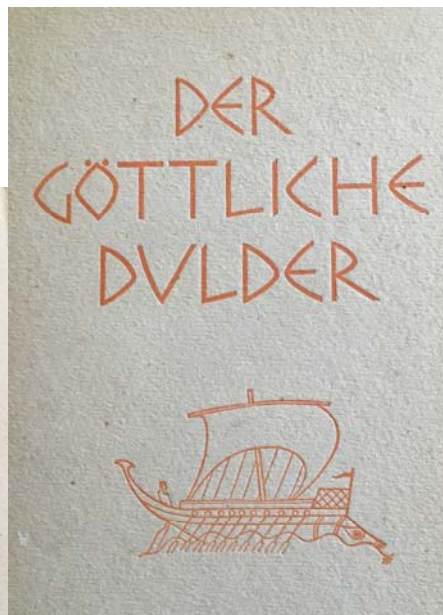 DER
GÖTTLICHE
DVLDER